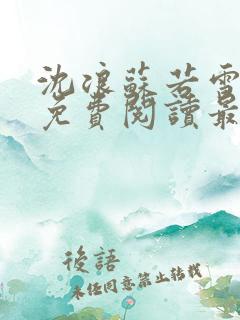 沈浪蘇若雪
免費閱讀最
後語
未经同意禁止转载